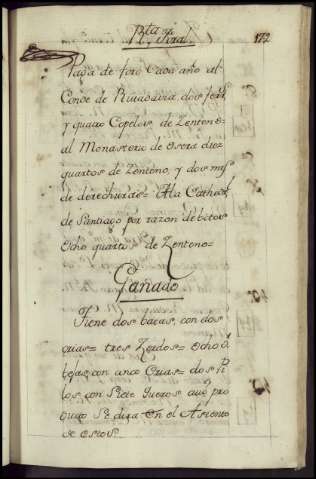 Rta. foral 172
Paga de foro Cada año al
Conde de Rivadavia, dos ferr.
y quatro Copelos de Zenteno=
al Monasterio de Osera diez
quartos de Zenteno, y dos mrs
de derechuras= A la Cathedl
de Santiago por razon de botos
Ocho quartos de Zenteno=
Ganado
Tiene dos bacas, con dos
crias= tres Zerdos= Ocho O
bejas, con cinco Crias= dos
los con Siete Jueros cuio pro
Se dira en el Asiento
de estos